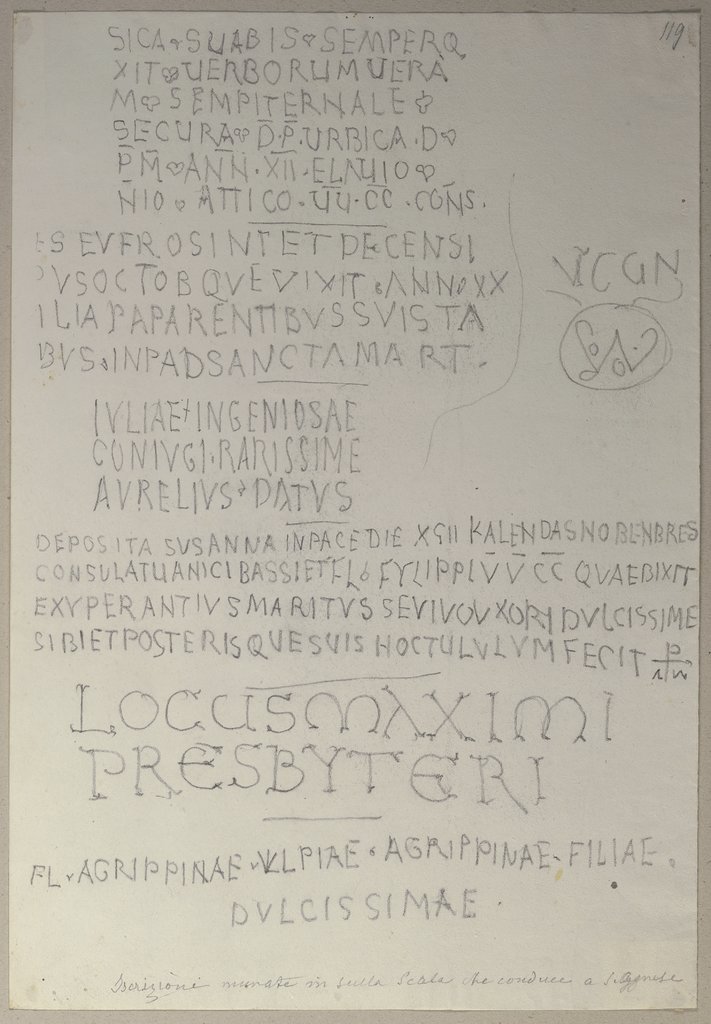 119
SICA SUABIS SEMPER Q
XIT UERBORUM UERA
M SEMPITERNALE
SECURA D.P. URBICA. D
P M ANN. XII. EL NUIO
NIO ATTICO. UU. CC. CONS.
ES EVFROSINTET DECENSI
PVSOCTOBQVEVIXIT ANNOXX
ILIA PAPARENTIBVSSVISTA
BVS INPADSANCTAMART.
VICGN
IVLIAE INGENIOSAE
CONIVGI RARISSIME
AVRELIVS DATVS
DEPOSITA SUSANNA INPACEDIE XGII KALENDASNOBENBRES
CONSULATUANICIBASSIETFL FYLIPPI VV CC QVAEBIXIT
EXVPERANTIVSMARITVSSEVIVOVXORI DVLCISSIME
SIBIETPOSTERISQUESUIS HOCTULVLVMFECIT
LOCUSMAXIMI
PRESBYTERI
FL AGRIPPINAE VLPIAE AGRIPPINAE FILIAE.
DVLCISSIMAE.
Iscrizioni murate in sulla Scala che conduce a S. Agnese